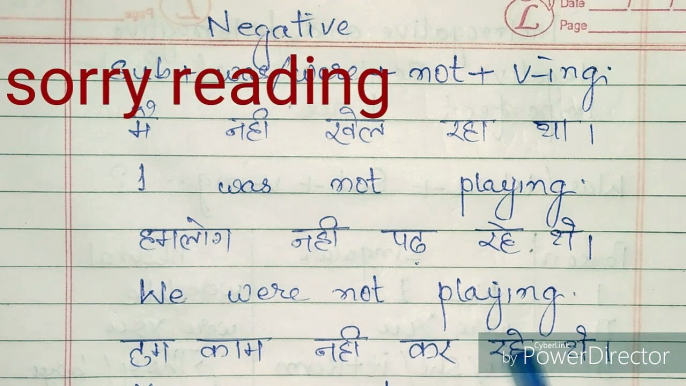 Date
Page
Negative
Sub + was/were + not + v-ing.
sorry reading
मैं नही खेल रहा था।
I was not playing.
हमलोग नही पढ़ रहे थे।
We were not playing.
तुम काम नही कर रहे थे
by CyberLink PowerDirector